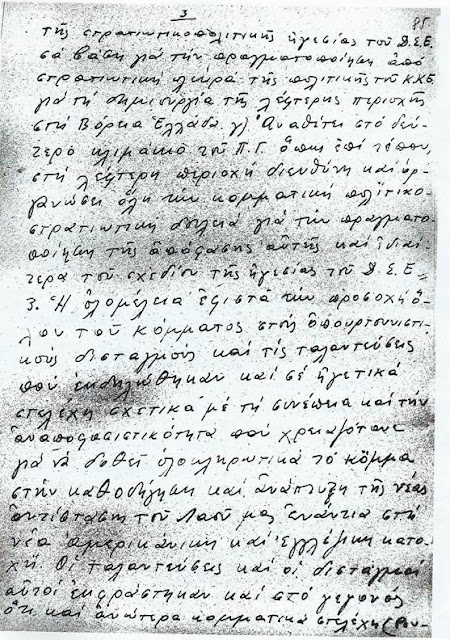 3
85
τῆς στρατιωτικοπολιτικῆς ἡγεσίας τοῦ Δ.Σ.Ε.
σά βάση γιά τήν πραγματοποίηση ἀπό
στρατιωτική πλευρά τῆς πολιτικῆς τοῦ ΚΚΕ
γιά τή δημιουργία τῆς λεύτερης περιοχῆς
στή Βόρεια Ἑλλάδα. γ) Ἀναθέτει στό δεύ-
τερο κλιμάκιο τοῦ Π.Γ. ὅπως ἐπί τόπου,
στή λεύτερη περιοχή διευθύνη καί ὀρ-
γανώσει ὅλη τήν κομματική πολιτικο-
στρατιωτική δουλειά γιά τήν πραγματο-
ποίηση τῆς ἀπόφασης αὐτῆς καί ἰδιαί-
τερα τοῦ σχεδίου τῆς ἡγεσίας τοῦ Δ.Σ.Ε =
3. Ἡ ὁλομέλεια ἐφιστά τήν προσοχή ὅ-
λου τοῦ κόμματος στούς ὀπορτουνιστι-
κούς δισταγμούς καί τίς ταλαντεύσεις
πού ἐκδηλώθηκαν καί σέ ἡγετικά
στελέχη σχετικά μέ τή συνέπεια καί τήν
ἀναποφασιστικότητα πού χρειαζότανε
γιά νά δοθεῖ ὁλοκληρωτικά τό κόμμα
στήν καθοδήγηση καί ἀνάπτυξη τῆς νέας
ἀντίστασης τοῦ Λαοῦ μας ἐνάντια στή
νέα ἀμερικάνικη καί ἐγγλέζικη κατο-
χή. Οἱ ταλαντεύσεις καί οἱ δισταγμοί
αὐτοί ἐκφράστηκαν καί στό γεγονός
ὅτι καί ἀνώτερα κομματικά στελέχη